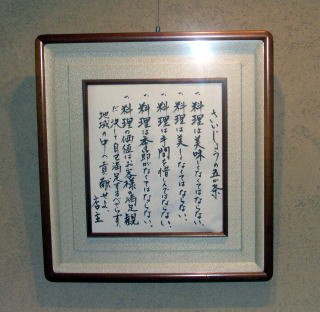 さいじょうの五条
一、料理は美味しくなくてはならない、
一、料理は美しくなくてはならない、
一、料理は手間を惜しんではならない、
一、料理は季節がなくてはならない、
一、料理の価値はお客様の満足観
だ 決して自己満足するべからず、
地域の中へ貢献せよ、
店主